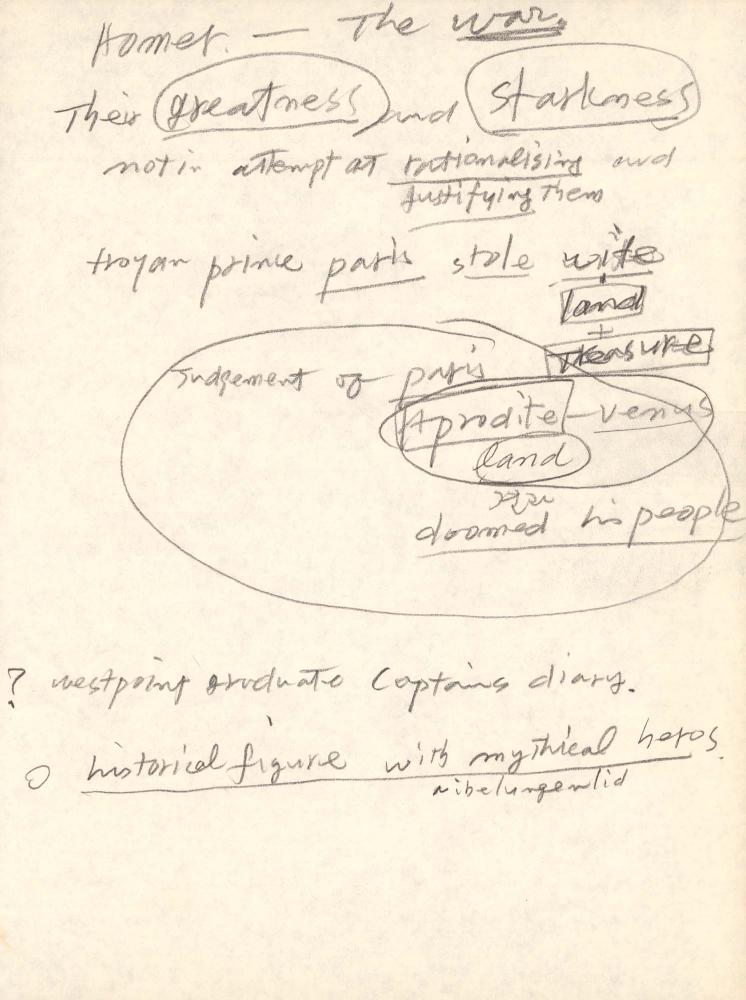 Homer. — The war.
Their greatness and starkness
not in attempt at rationalising and
justifying Them
troyan prince paris stole wife
land
+
treasure
Judgement of paris
Aprodite – Venus
land
doomed his people
? westpoint graduate Captains diary.
O historical figure with mythical heros.
nibelungenlid